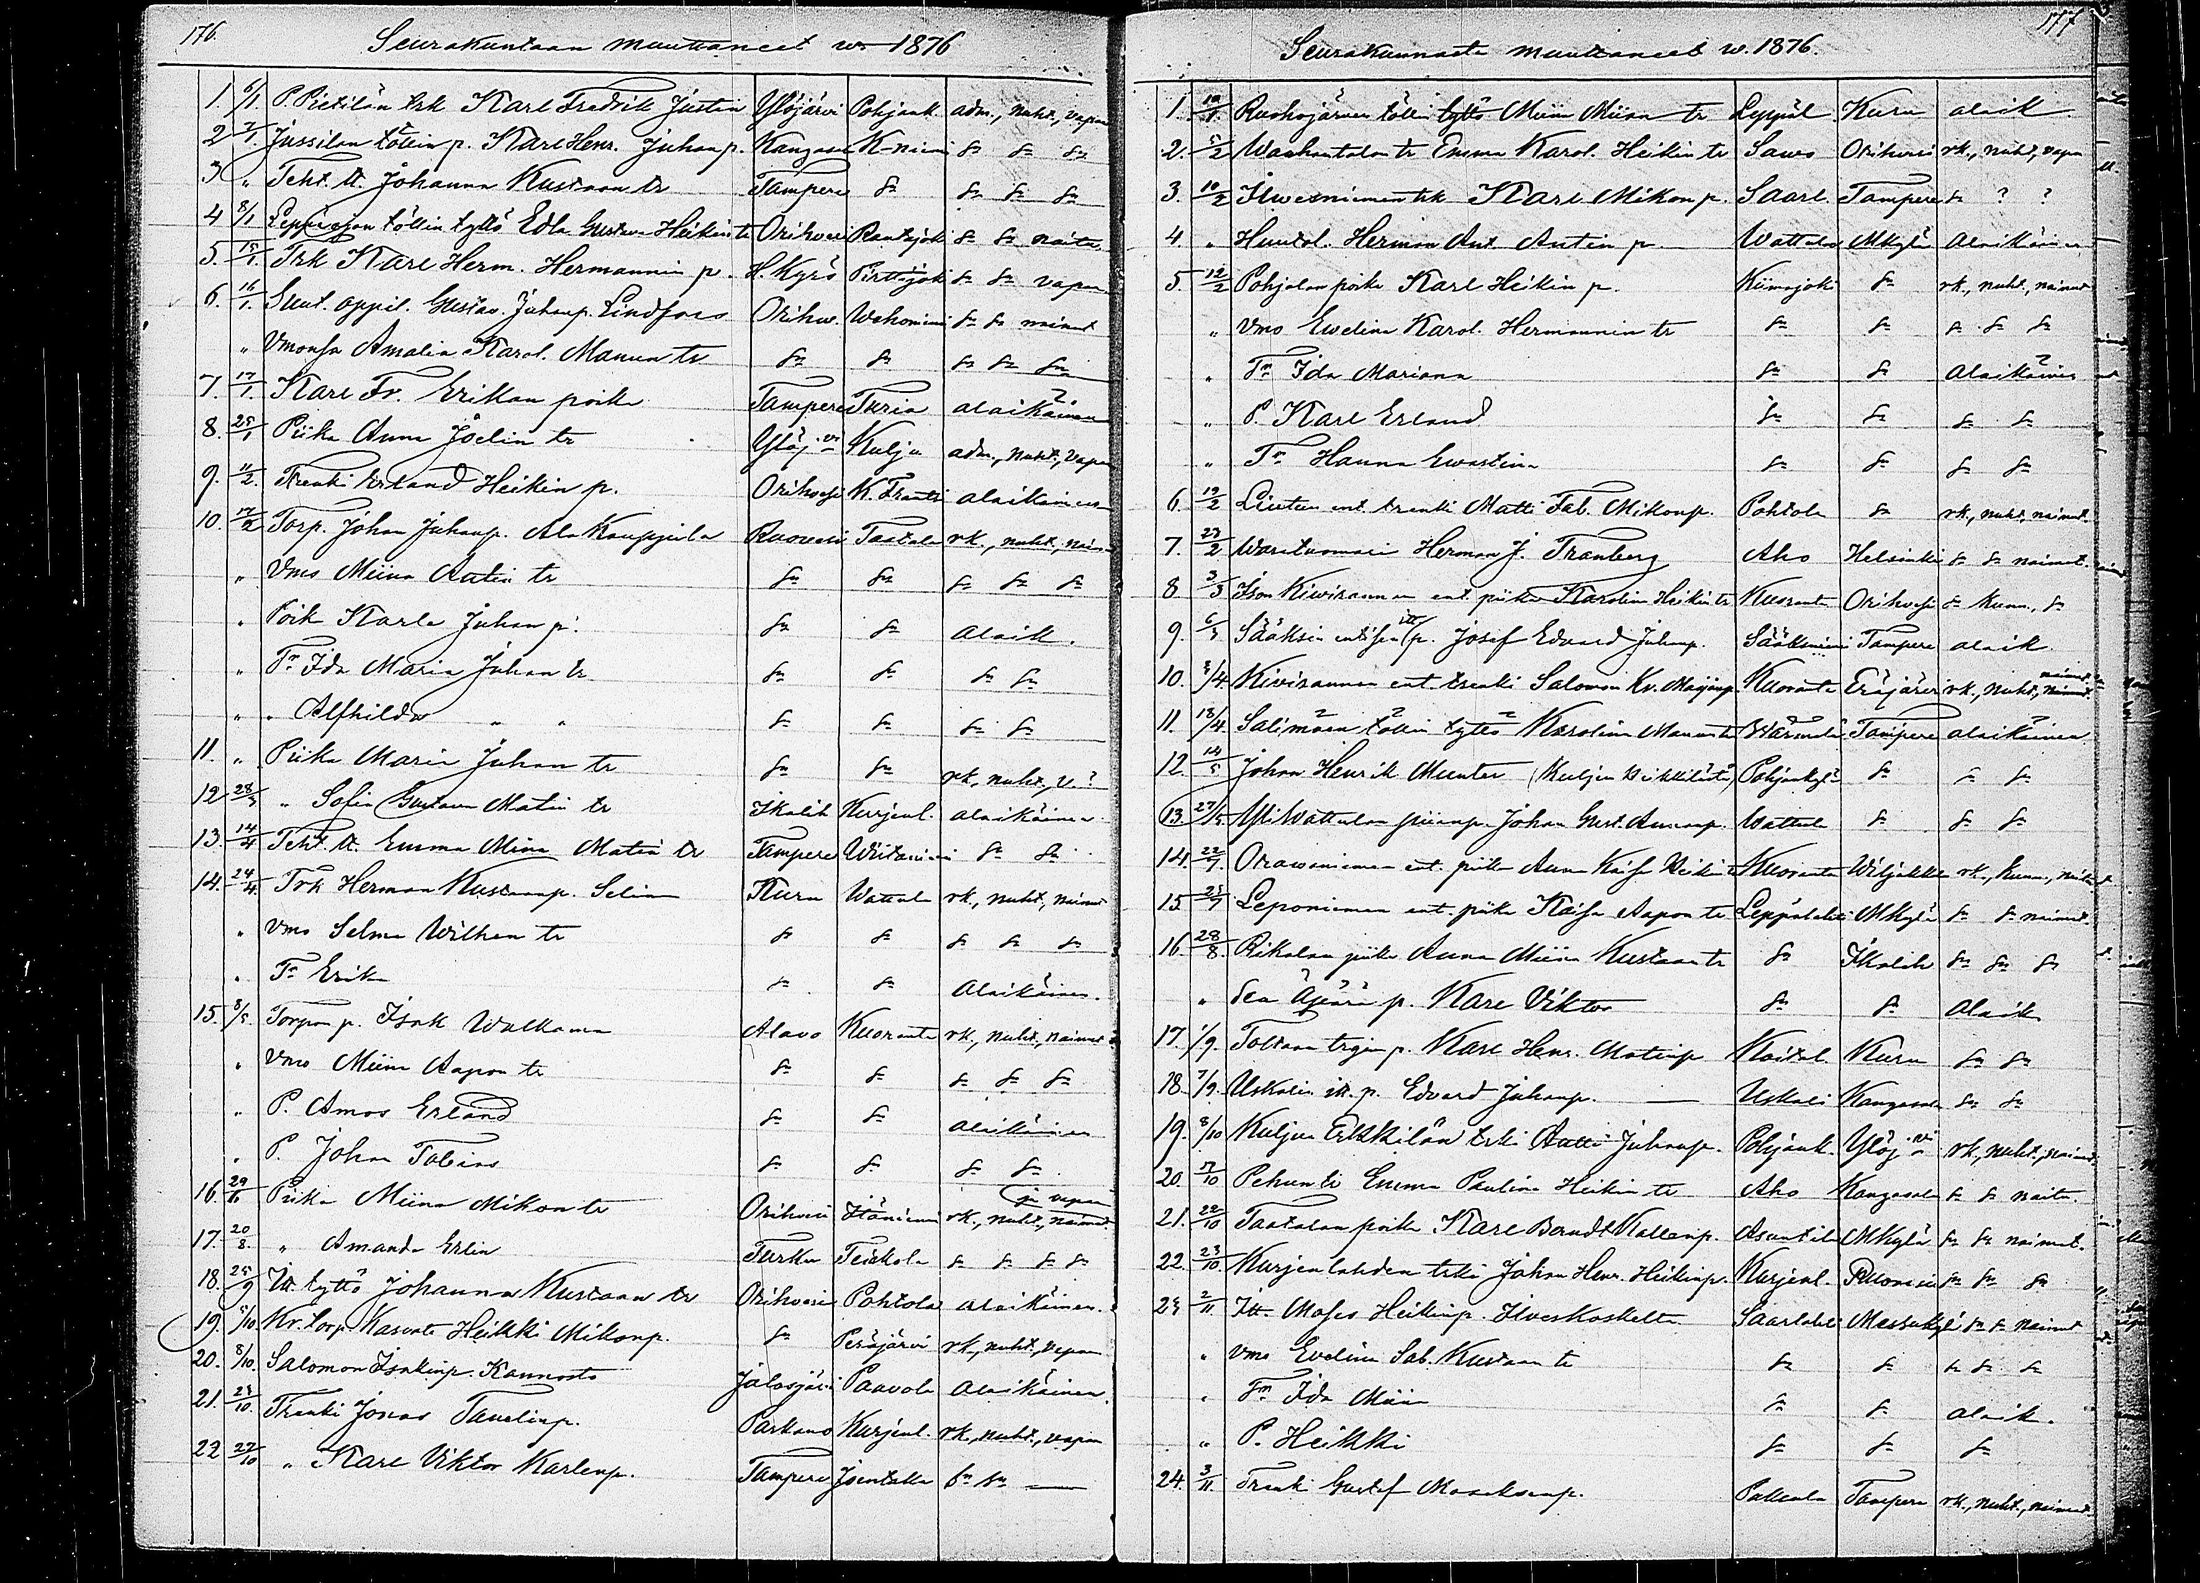 176.
Seurakuntaan muuttaneet w. 1876
1. 6/1. P. Pietilän trk Karl Fredrik Justin Ylöjärvi Pohjank adm., nuht., vapa
2 7/1. Jussilan töllin p. Karl Henr. Juhanp. Kangasa K-niemi d:o d:o d:o
3 " Teht. tt. Johanna Kustaan tr Tampere d:o d:o d:o d:o
4 8/1 töllin tyttö Edla Gustava Heikin tr Orihvesi Rantajok d:o d:o naita.
5. 15/1. Trk Karl Herm. Hermannin p. H. Kyrö Pirttijok d:o d:o vapa
6. 16/1. Suut. oppil. Gustav Juhanp. Lindfors Orihv. Wehoniemi d:o d:o nainut
" Vmonsa Amalia Karol. Manun tr d:o d:o d:o d:o d:o
7. 17/1. Karl Fr. Erikan poika Tampere Turia alaikäinen
8. 25/1 Piika Anna Joelin tr Ylöj:vi Kulju adm., nuht., vapa
9. 11/2. Trenki Erland Heikin p. Orihvesi K. Frantti alaikäinen
10. 17/2 Torp. Johan Juhanp. Ala Kauppila Ruovesi Taatala rk., nuht., nain
" Vmo Miina Antin tr d:o d:o d:o d:o d:o
" Poik Karle Juhan p. d:o d:o alaik.
" Tr Ida Maria Juhan tr. d:o d:o d:o d:o
" " Alfhilda " " d:o d:o d:o d:o
11. " Piika Maria Juhan tr d:o d:o rk, nuht., v.?
12 28/3 " Sofia Gustava Matin tr Ikalih Kurjenl. alaikäinen
13. 14/4 Teht. tt. Emma Mina Matin tr Tampere Wiitaniemi d:o d:o
14. 24/4. Trk Herman Kustaanp. Selin Kuru Wattula rk., nuht., nainut
" Vmo Selma Wilhen tr d:o d:o d:o d:o d:o
" Tr Erika d:o d:o Alaikäinen.
15. 8/5. Torpan p. Isak Walkama Alavo Kuorante rk., nuht., nainut
" Vmo Miina Aapon tr d:o d:o d:o d:o d:o
" P. Amos Erland d:o d:o alaikäinen
" P. Johan Tobias d:o d:o d:o d:o
16. 29/6 Piika Miina Mikon tr Orihvesi Itäniemi rk., nuht., nainut ja vapaa
17. 20/8. " Amanda Erlin Turku Teiskola d:o d:o d:o d:o
18. 25/9 Itt. tyttö Johanna Kustaan tr Orihvesi Pohtola alaikäinen.
19. 5/10. Kr. torp. Kasvate Heikki Mikonp. d:o Peräjärvi rk., nuht., vapa
20. 8/10. Salomon Isakinp. Kannosto Jalasjärvi Paavola Alaikäinen
21. 23/10. Trenki Jonas Taavetinp. Parkano Kurjenl. rk., nuht., vapa
22 27/10 " Karl Viktor Karlenp. Tampere Joentaka d:o d:o
177
Seurakunnasta muuttaneet w. 1876.
1. 10/1. Ruohojärven töllin tyttö Miina tr Leppäl Kuru alaik.
2. 5/2 Waahantalon tr Emma Karol. Heikin tr Savo Orihvesi rk., nuht., vapa
3. 10/2 Ilvesniemen trk Karl Mikonp. Saarl. Tampere d:o ? ?
4. " Huutol. Herman Ant. Antin p. Wattula Mkylä Alaikäinen
5. 12/2 Pohjolan poika Karl Heikin p. Kiimajoki d:o rk., nuht., nainut
" Vmo Evelina Karol. Hermannin tr d:o d:o d:o d:o d:o
" Tr Ida Mariana d:o d:o Alaikäinen
" P. Karl Erland d:o d:o d:o d:o
" Tr Hanna Evastina d:o d:o d:o d:o
6. 19/2 ent. trenki Matti Fab. Mikonp. Pohtola d:o rk., nuht., nainut.
7. 23/2 Waratuomari Herman J. Tranberg Aho Helsinki d:o d:o nainut.
8 3/3 Ison Kivirannan ent. piika Karolin Heikin tr Kuorante Orihvesi d:o kunn., d:o
9. 6/3 Sääksin entisen itt p. Josef Edvard Juhanp. Sääksniemi Tampere alaik.
10. 8/4. Kivirannan ent. trenki Salomon Kr. Maijanp. Kuorante Eräjärvi rk., nuht., nainut.
11. 18/4. Salimäen töllin tyttö Karolina Manun tr Wärmälä Tampere alaikäinen
12. 14/5 Johan Henrik Munter (Kuljun Pohjankylä d:o d:o d:o
13. 27/5. Yli Wattulan piianp. Johan Gust. Annanp. Wattul d:o d:o d:o
14. 22/7. Oravaniemen ent. piika Anna Kaisa Heikin Kuorante Wiljakka rk., kunn., naita.
15 25/7 Leponiemen ent. piika Kaisa Aapon tr Leppälahti Mkylä d:o d:o nainut.
16. 28/8. Rikalan piika Anna Miina Kustaan tr d:o Ikalih d:o d:o d:o
" Sen Äpärä p. Karl Viktor d:o d:o Alaik.
17. 1/9. Toltaan trgin p. Karl Henr. Matinp Kaital Kuru d:o d:o
18. 7/9. Uskalin itt. p. Edvard Juhanp. Uskali Kangasala d:o d:o
19. 8/10 Kuljun Erkkilän trki Antti Juhanp. Pohjank. Ylöj:vi rk., nuht., nainut
20. 17/10 Pehun tr Emma Paulina Heikin tr Aho Kangasala d:o d:o naita.
21. 22/10 Taatalan poika Karl Brandt Kallenp. Asuntila Mkylä d:o d:o nainut.
22. 23/10. Kurjenlahden trki Johan Henr. Heikinp. Kurjenl. Ruovesi d:o d:o d:o
23 2/11. Itt. Moses Heikinp. Ilveskoskelta Saarlahti Messukylä d:o d:o nainut
" Vmo Evelina Sab. Kustaan tr d:o d:o d:o d:o d:o
" Tr Ida Miin d:o d:o alaik.
" P. Heikki d:o d:o d:o
24. 3/11. Trenki Gustaf Moseksenp. Pakkala Tampere rk., nuht., nainut.